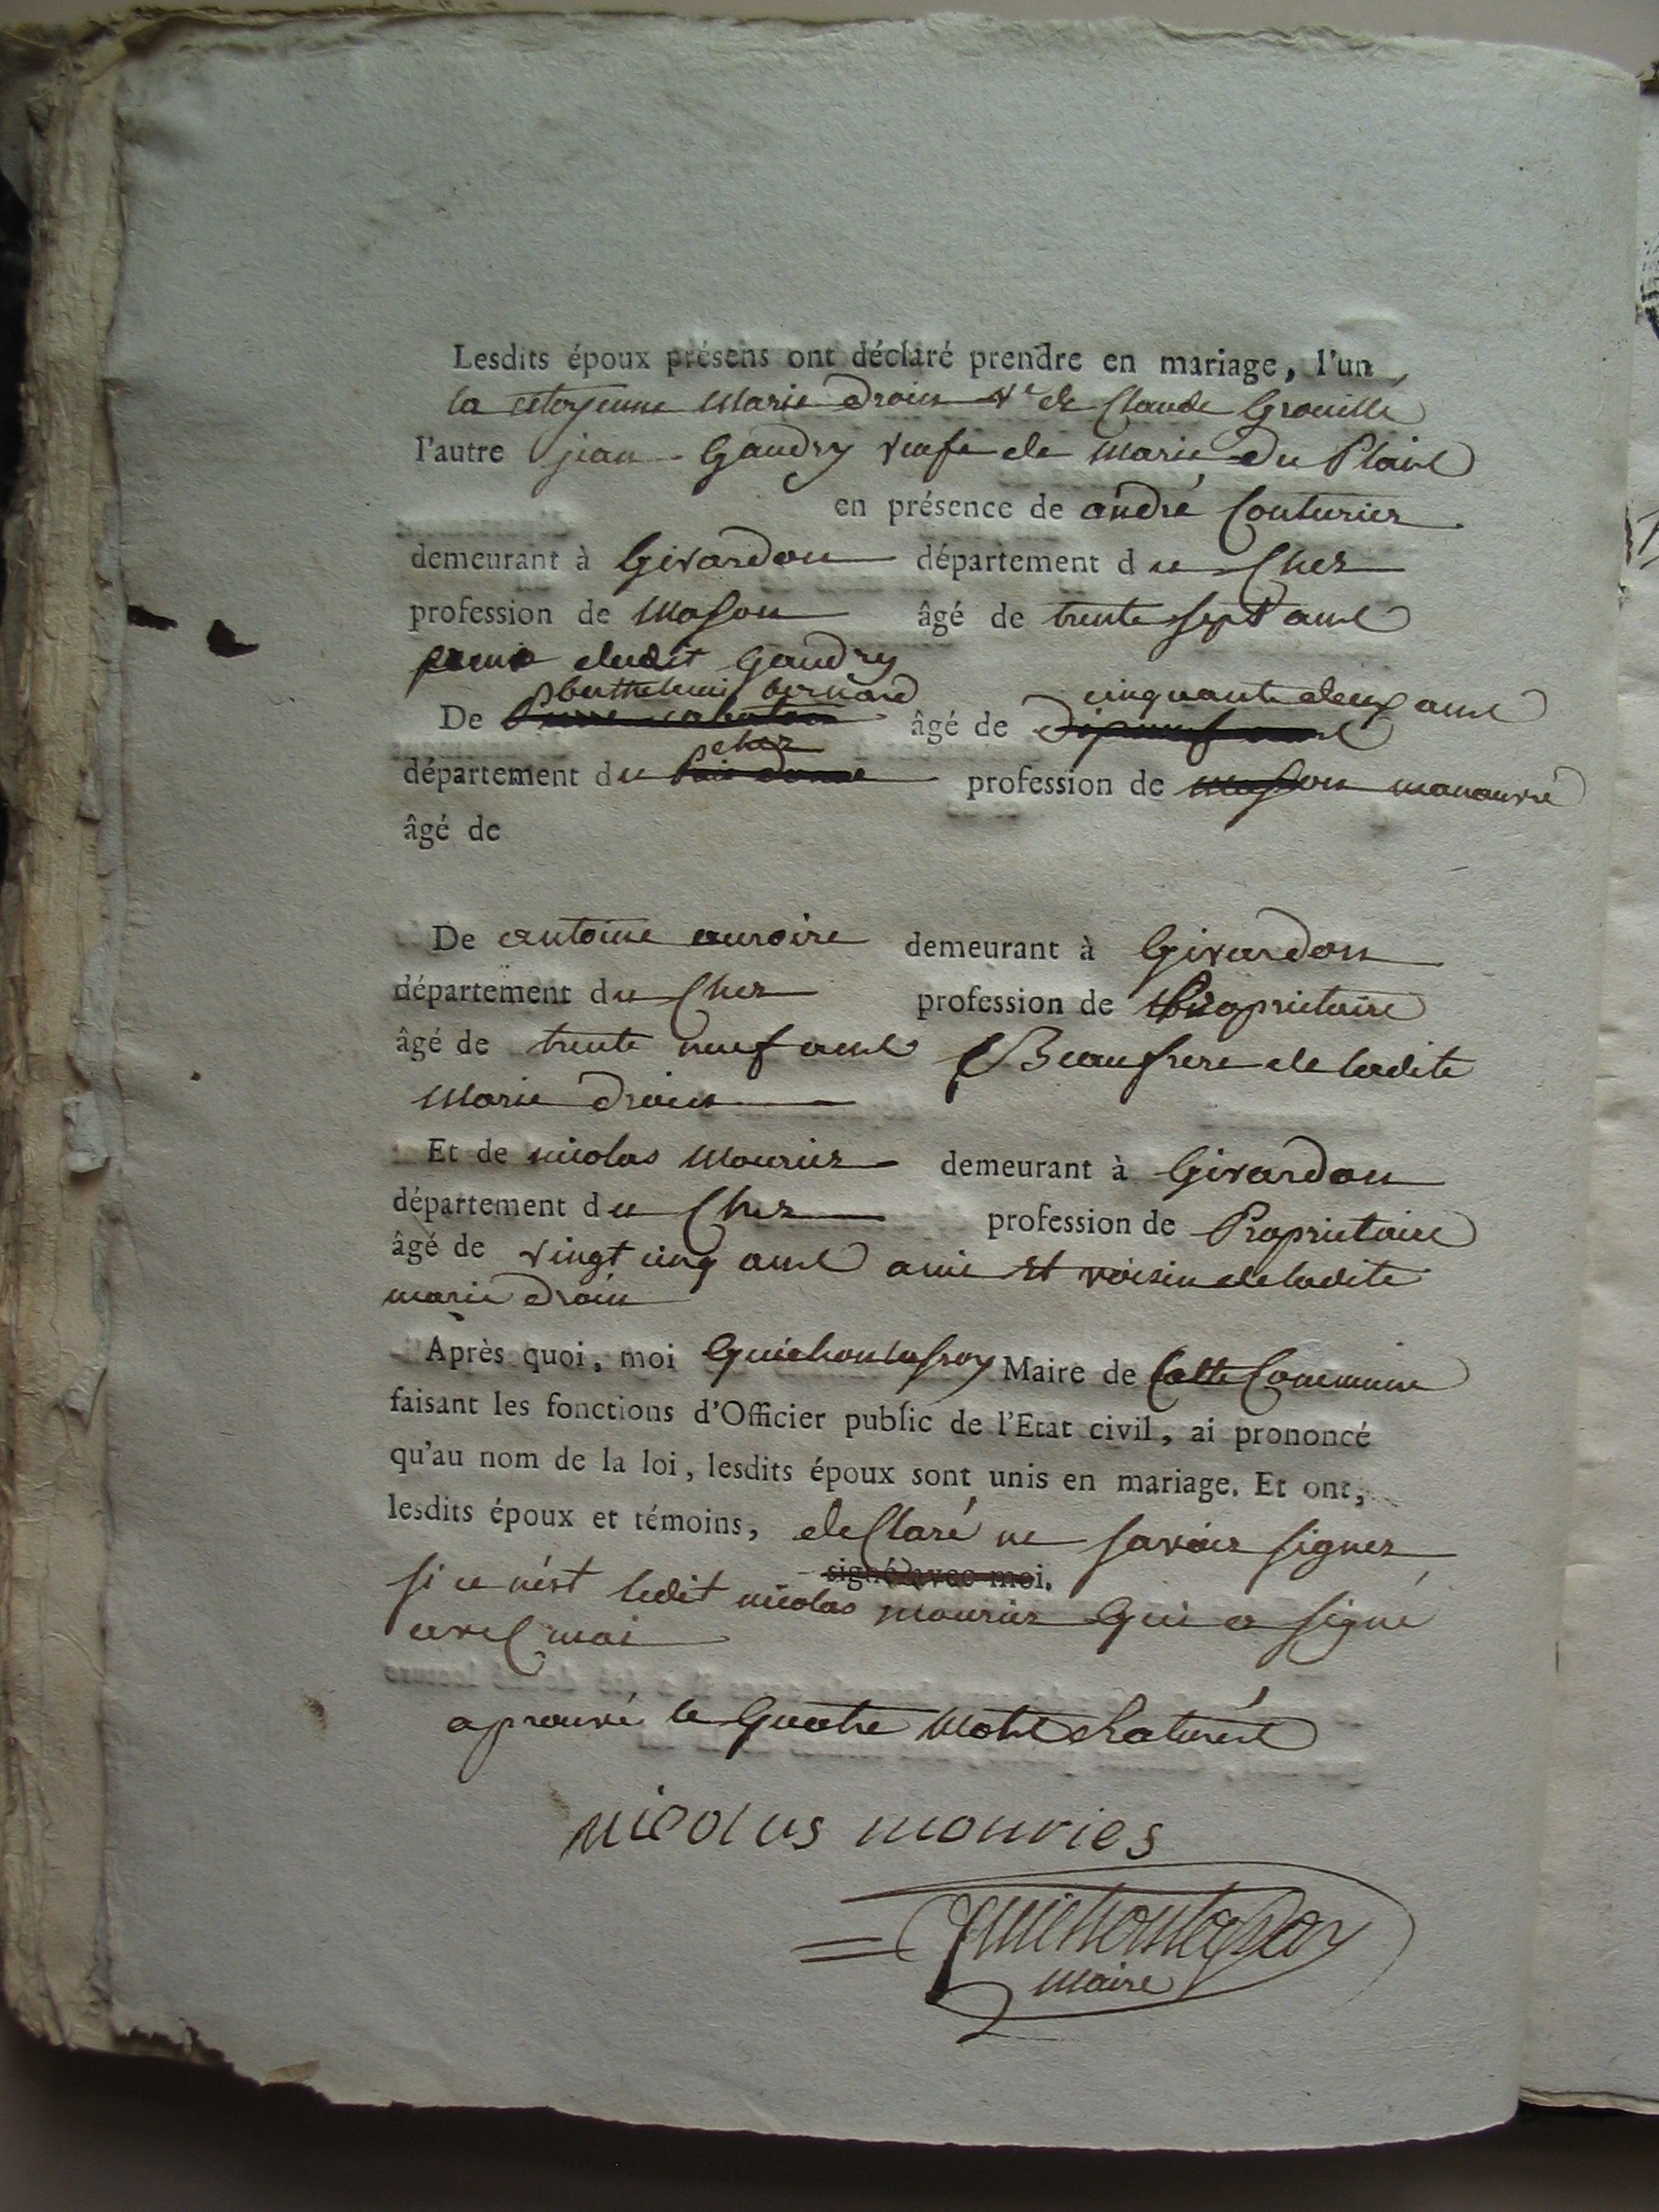 Lesdits époux présens ont déclaré prendre en mariage, l'un
la citoyenne marie drouin ve de Claude Grouille
l'autre jean Gaudry veufe de marie du Plaix
en présence de andré Couturier
demeurant à Givardon département du Cher
profession de mason âgé de trente sept ans
dudit Gaudry
berthelemi bernard cinquante deux ans
De âgé de
cher
département du profession de mason manouvré
âgé de
De antoine auroire demeurant à Givardon
département du Cher profession de Propriétaire
âgé de trente neuf ans Beaufrere de ladite
marie drouin
Et de nicolas mourier demeurant à Givardon
département du Cher profession de Proprietaire
âgé de vingt cinq ans ami et voisin de ladite
marie drouin
Après quoi, moi Guichonlafroy Maire de Cette Commune
faisant les fonctions d'Officier public de l'Etat civil, ai prononcé
qu'au nom de la loi, lesdits époux sont unis en mariage. Et ont,
lesdits époux et témoins, declaré ne savoir signer
signé avec moi.
si ce nést ledit nicolas mourier qui a signé
avec moi
aprouvé le quatre mots raturés
nicolas mouries
maire